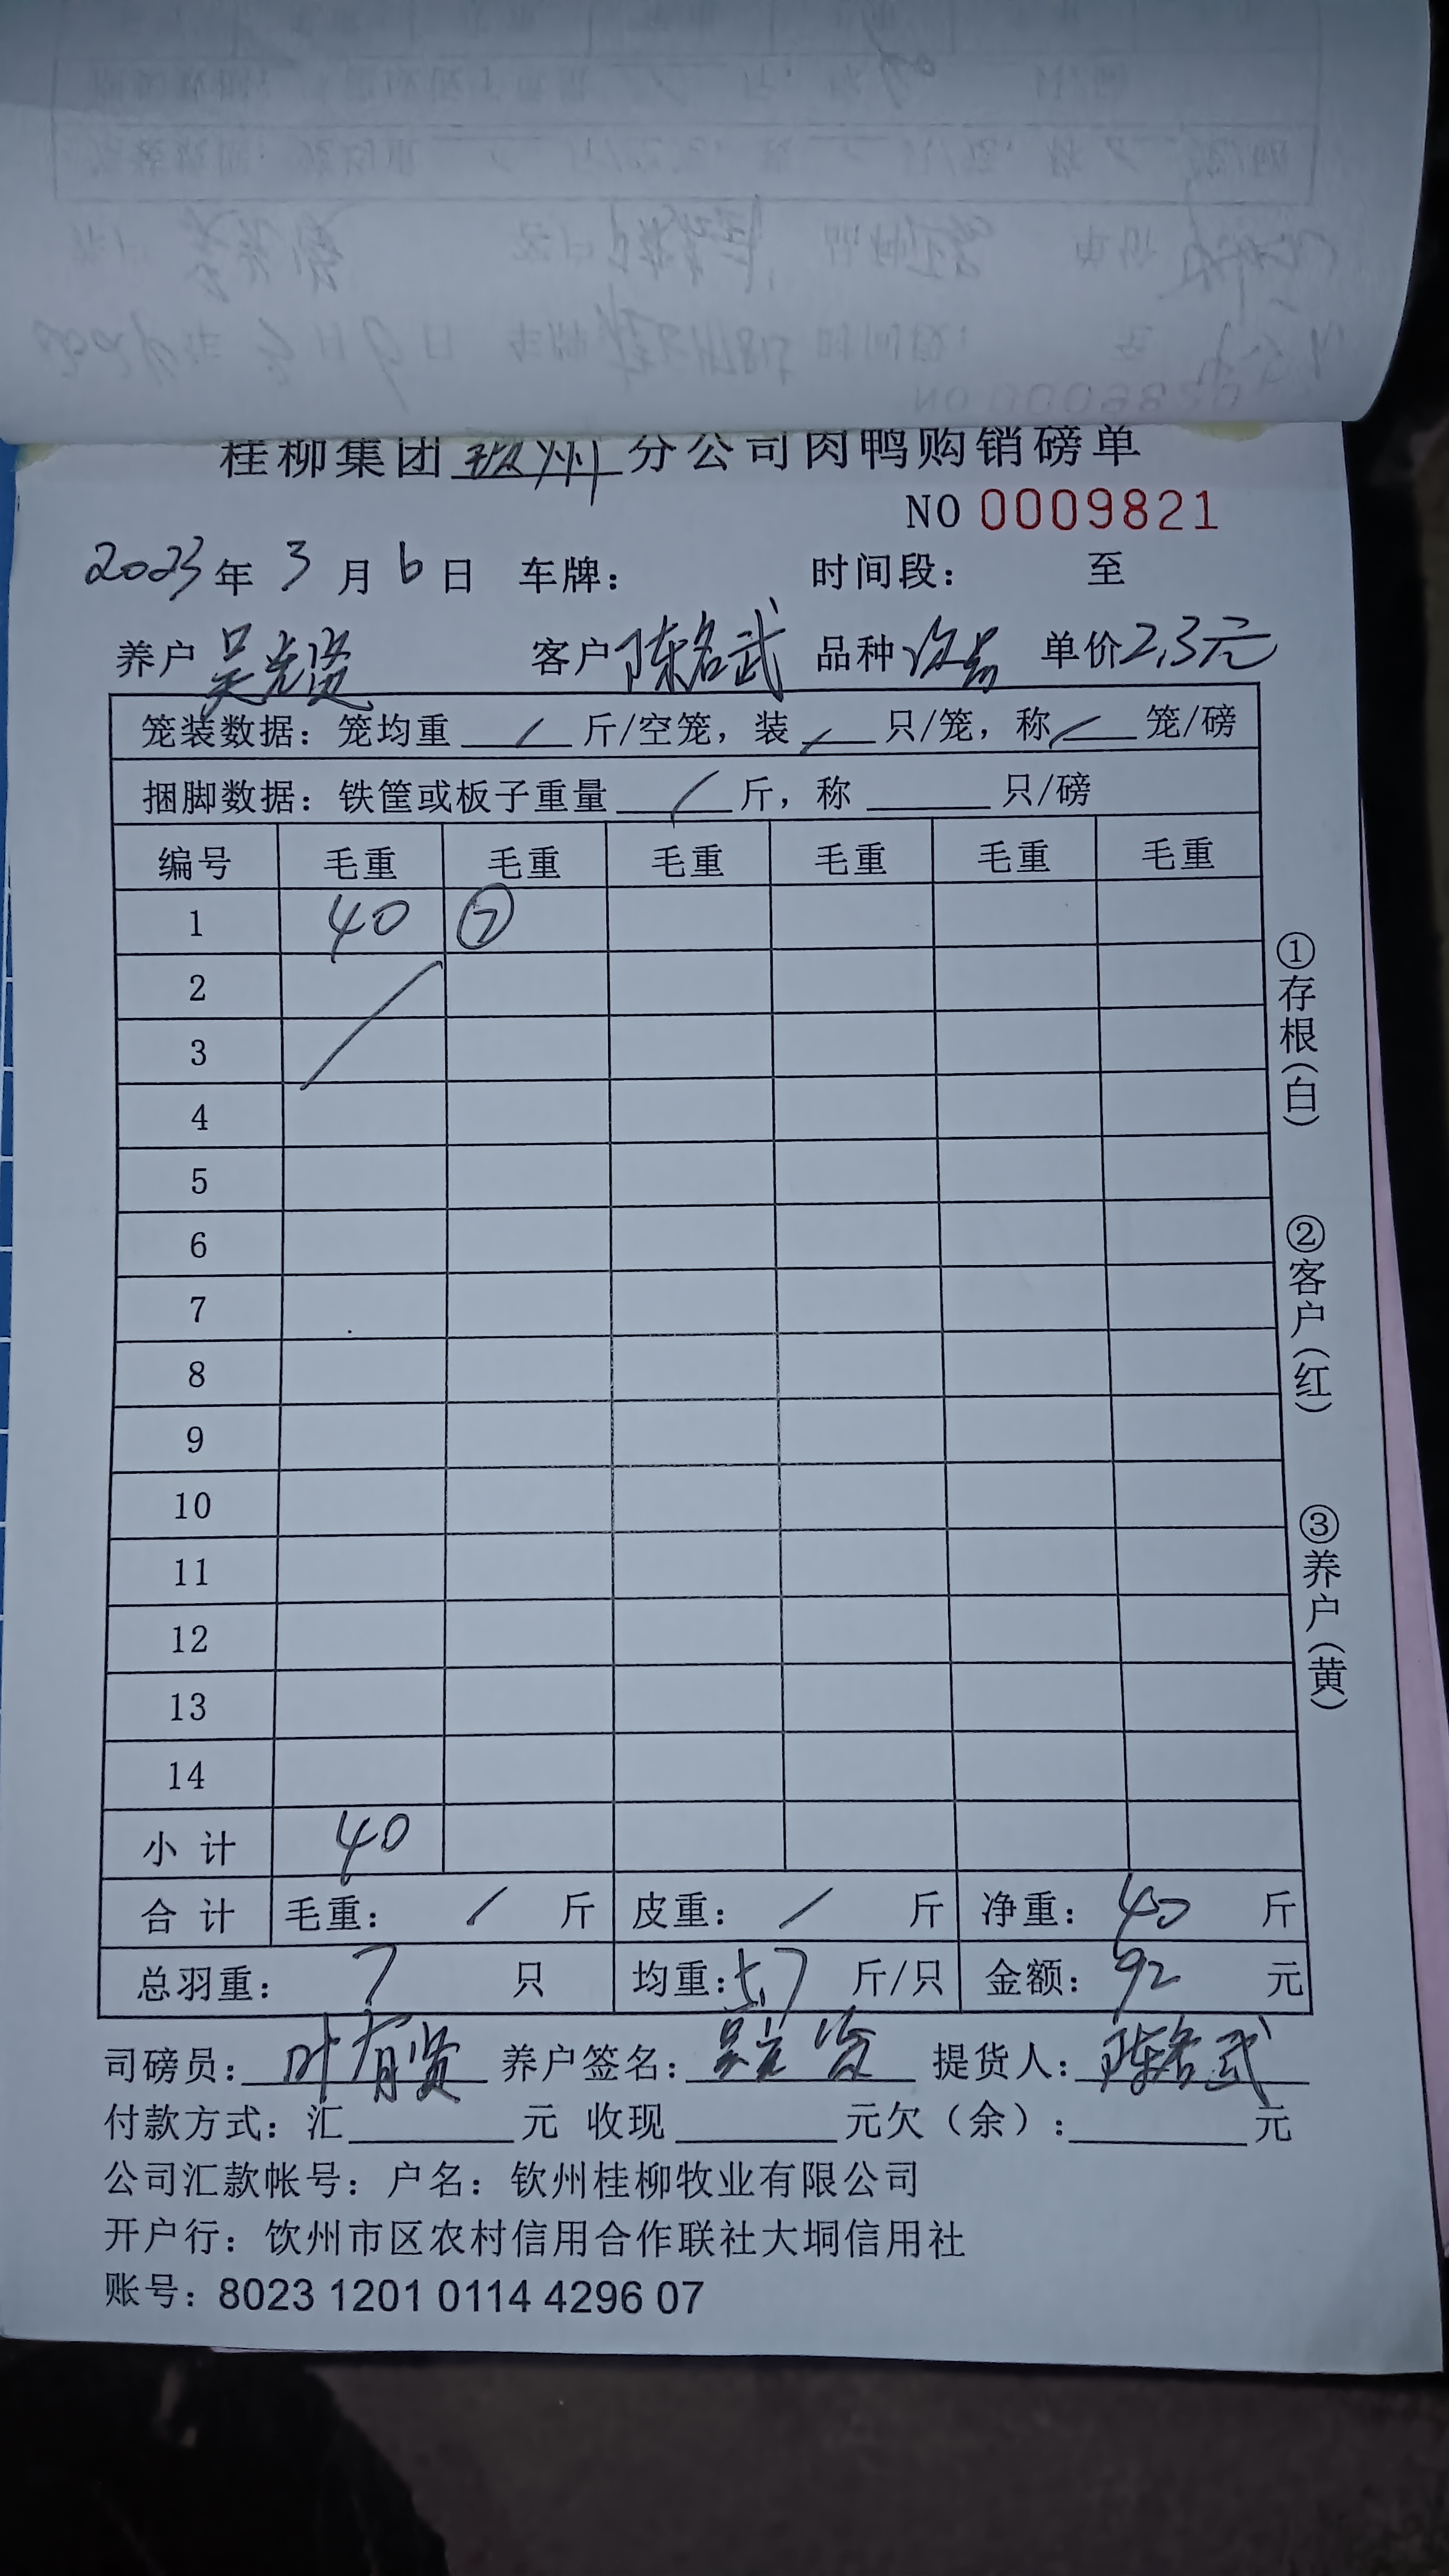 桂柳集团钦州分公司肉鸭购销磅单
NO 0009821
2023年 3月 6日 车牌： 时间段： 至
养户 吴光贤 客户 陈名武 品种 单价 2.3元
笼装数据：笼均重 / 斤/空笼，装 / 只/笼，称 / 笼/磅
捆脚数据：铁筐或板子重量 / 斤，称 只/磅
编号 毛重 毛重 毛重 毛重 毛重 毛重
1 40 ⑦
2
3
4
5
6
7
8
9
10
11
12
13
14
小计 40
合计 毛重： / 斤 皮重： / 斤 净重： 40 斤
总羽重： 7 只 均重：5.7 斤/只 金额： 92 元
司磅员：叶有贤 养户签名：吴光贤 提货人：陈名武
付款方式：汇 元 收现 元欠（余）： 元
公司汇款帐号：户名：钦州桂柳牧业有限公司
开户行：饮州市区农村信用合作联社大垌信用社
账号：8023 1201 0114 4296 07
①存根（白）
②客户（红）
③养户（黄）